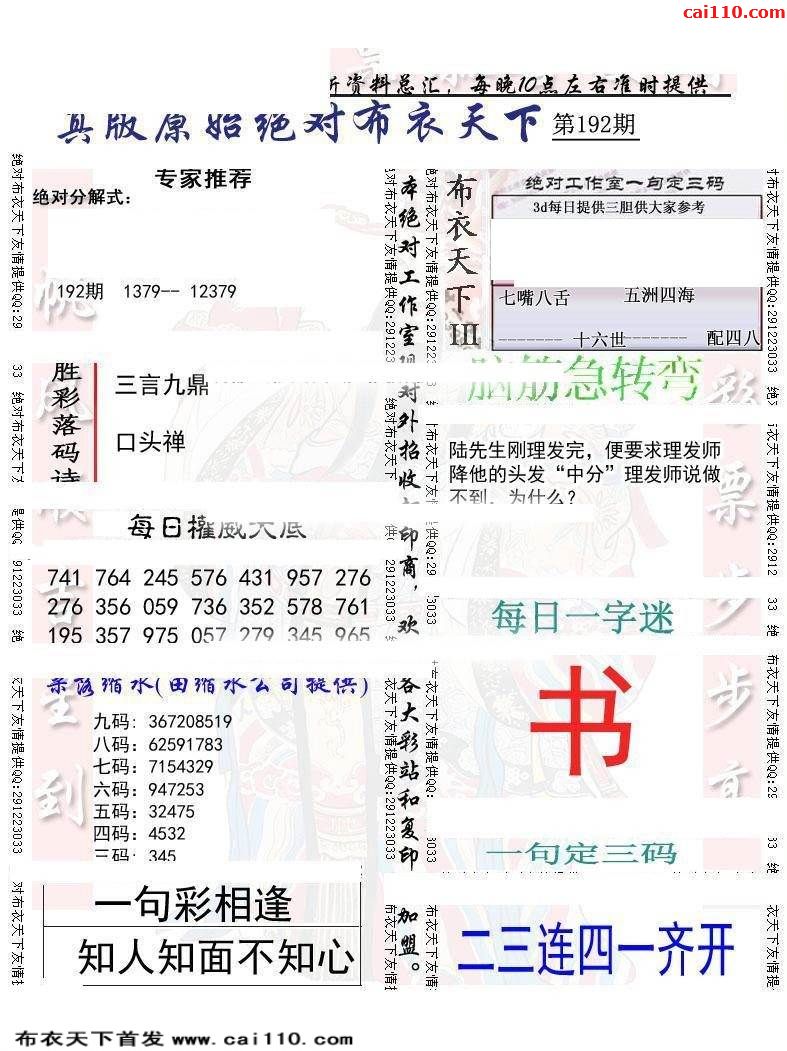 cai110.com
资料总汇，每晚10点左右准时提供
版原始绝对布衣天下 第192期
专家推荐
绝对分解式：
192期 1379-- 12379
胜彩落码诗
三言九鼎
口头禅
每日权威大底
741 764 245 576 431 957 276
276 356 059 736 352 578 761
195 357 975 057 279 345 965
缩水(田缩水公司提供)
九码: 367208519
八码: 62591783
七码: 7154329
六码: 947253
五码: 32475
四码: 4532
三码: 345
一句彩相逢
知人知面不知心
本绝对工作室
对外招收
印商，欢
各大彩站和复印
加盟。
布衣天下III
绝对工作室一句定三码
3d每日提供三胆供大家参考
七嘴八舌 五洲四海
-------- 十六世------- 配四八
脑筋急转弯
陆先生刚理发完，便要求理发师
降他的头发“中分”理发师说做
不到。为什么？
每日一字迷
书
一句定三码
二三连四一齐开
彩票步步高
绝对布衣天下友情提供QQ:291223033
布衣天下首发 www.cai110.com